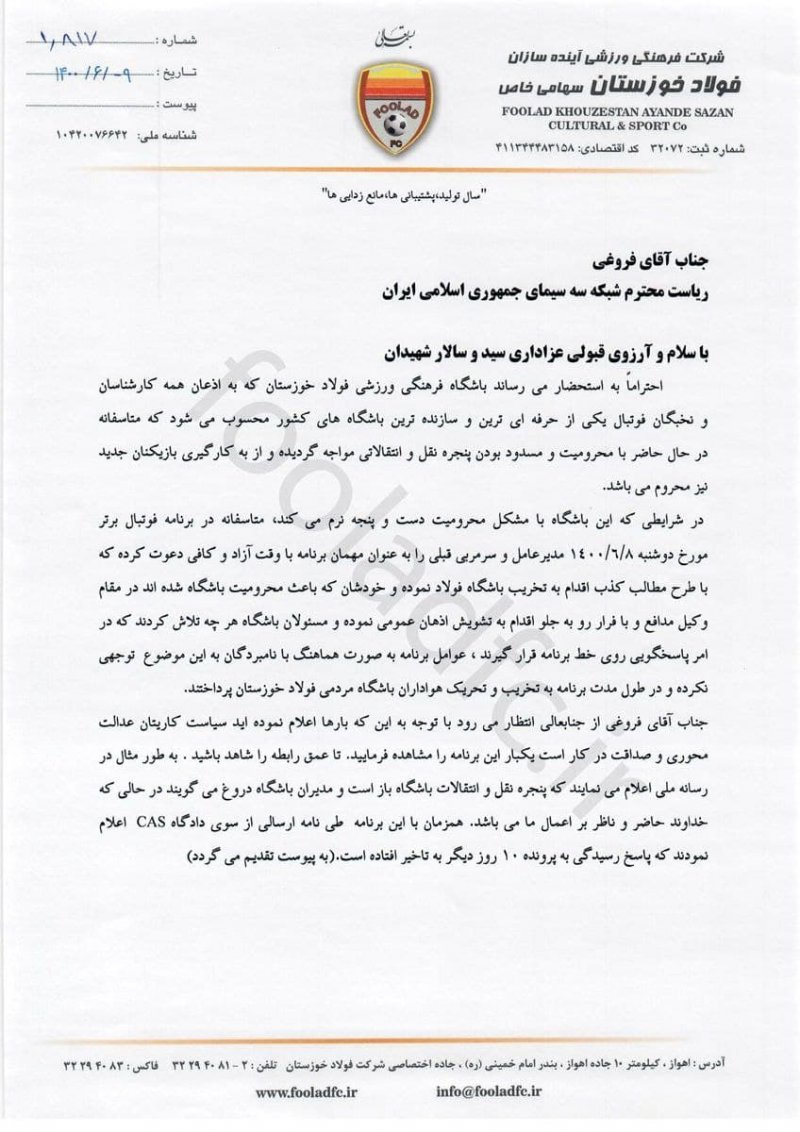 بسمه تعالی
شماره : ۱,۸۱۷
تاریخ : ۱۴۰۰/۶/۰۹
پیوست :
شناسه ملی: ۱۰۴۲۰۰۷۶۶۴۲
FOOLAD
FC
شرکت فرهنگی ورزشی آینده سازان
فولاد خوزستان سهامی خاص
FOOLAD KHOUZESTAN AYANDE SAZAN
CULTURAL & SPORT Co
شماره ثبت: ۳۲۰۷۲ کد اقتصادی: ۴۱۱۳۴۴۴۸۳۱۵۸
"سال تولید،پشتیبانی ها،مانع زدایی ها"
جناب آقای فروغی
ریاست محترم شبکه سه سیمای جمهوری اسلامی ایران
با سلام و آرزوی قبولی عزاداری سید و سالار شهیدان
احتراماً به استحضار می رساند باشگاه فرهنگی ورزشی فولاد خوزستان که به اذعان همه کارشناسان
و نخبگان فوتبال یکی از حرفه ای ترین و سازنده ترین باشگاه های کشور محسوب می شود که متاسفانه
در حال حاضر با محرومیت و مسدود بودن پنجره نقل و انتقالاتی مواجه گردیده و از به کارگیری بازیکنان جدید
نیز محروم می باشد.
در شرایطی که این باشگاه با مشکل محرومیت دست و پنجه نرم می کند، متاسفانه در برنامه فوتبال برتر
مورخ دوشنبه ۱۴۰۰/۶/۸ مدیرعامل و سرمربی قبلی را به عنوان مهمان برنامه با وقت آزاد و کافی دعوت کرده که
با طرح مطالب کذب اقدام به تخریب باشگاه فولاد نموده و خودشان که باعث محرومیت باشگاه شده اند در مقام
وکیل مدافع و با فرار رو به جلو اقدام به تشویش اذهان عمومی نموده و مسئولان باشگاه هر چه تلاش کردند که در
امر پاسخگویی روی خط برنامه قرار گیرند ، عوامل برنامه به صورت هماهنگ با نامبردگان به این موضوع توجهی
نکرده و در طول مدت برنامه به تخریب و تحریک هواداران باشگاه مردمی فولاد خوزستان پرداختند.
جناب آقای فروغی از جنابعالی انتظار می رود با توجه به این که بارها اعلام نموده اید سیاست کاریتان عدالت
محوری و صداقت در کار است یکبار این برنامه را مشاهده فرمایید. تا عمق رابطه را شاهد باشید . به طور مثال در
رسانه ملی اعلام می نمایند که پنجره نقل و انتقالات باشگاه باز است و مدیران باشگاه دروغ می گویند در حالی که
خداوند حاضر و ناظر بر اعمال ما می باشد. همزمان با این برنامه طی نامه ارسالی از سوی دادگاه CAS اعلام
نمودند که پاسخ رسیدگی به پرونده ۱۰ روز دیگر به تاخیر افتاده است.(به پیوست تقدیم می گردد)
fooladfc.ir
آدرس : اهواز ، کیلومتر ۱۰ جاده اهواز ، بندر امام خمینی (ره) ، جاده اختصاصی شرکت فولاد خوزستان تلفن : ۲ - ۸۱ ۴۰ ۲۹ ۳۲ فاکس : ۸۳ ۴۰ ۲۹ ۳۲
www.fooladfc.ir info@fooladfc.ir